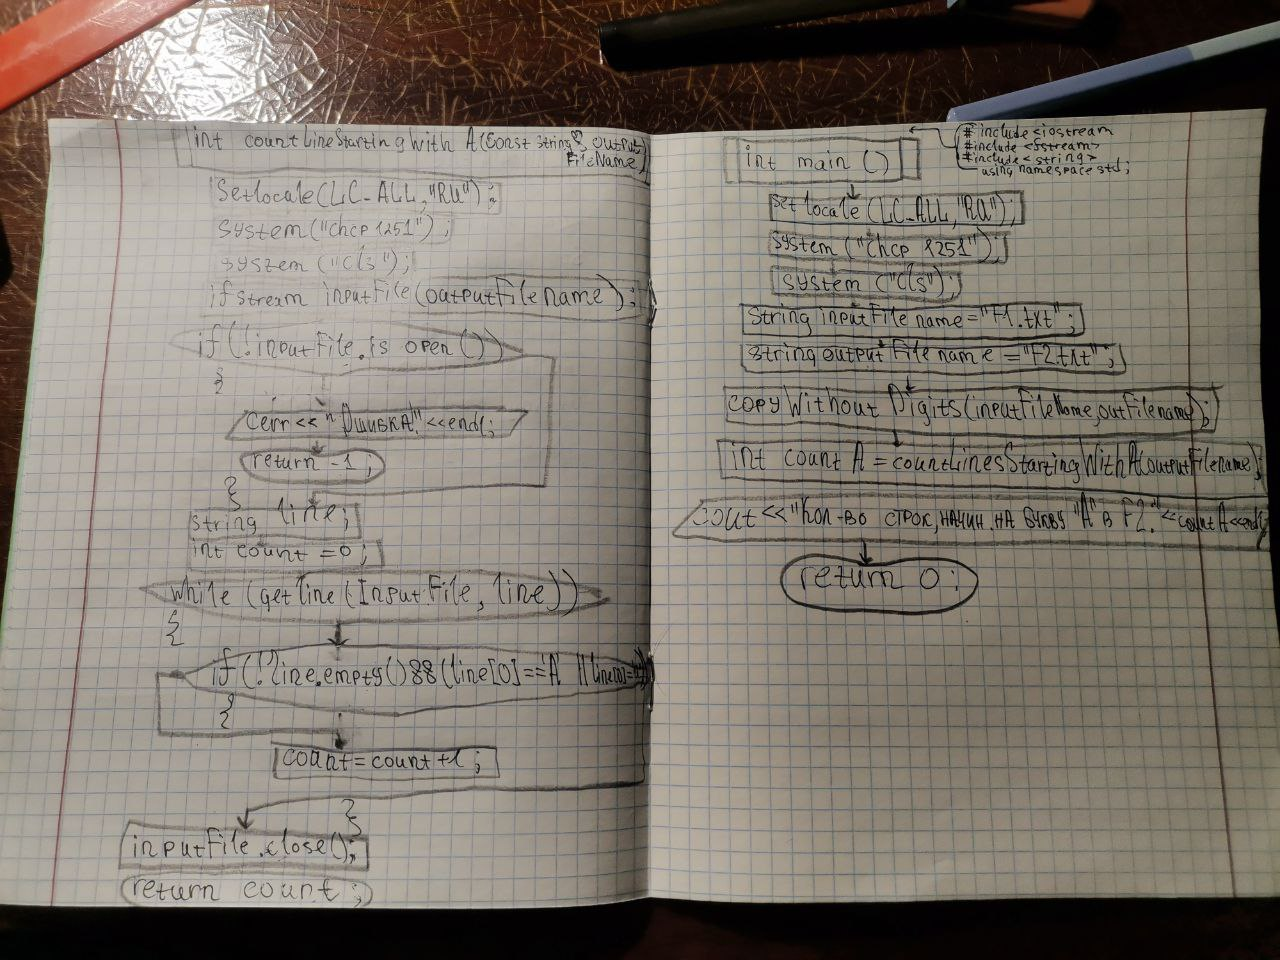 int countLineStartingWith A(Const string& output
FileName)
Setlocale(LC_ALL,"RU");
System("chcp 1251");
system ("cls");
ifstream inputFile(outputFilename);
if(!inputFile.is open())
{
cerr<<"Ошибка!"<<endl;
return -1;
}
string line;
int count =0;
while (getline(InputFile, line))
{
if(!line.empty()&&(line[0]=='A ||line[0]=
{
count=count+1;
}
inputFile.close();
return count;
#include<iostream
#include <fstream>
#include<string>
using namespace std;
int main ()
setlocale(LC_ALL,"RU");
system ("chcp 1251");
system ("cls");
String inputFilename="F1.txt";
string outputFilename="F2txt";
copyWithout Digits(inputFileName,outFilename);
int count A=countLinesStartingWithA(outputFilename)
cout<<"Кол-во строк,начин.на букву "А" в F2:"<<countA<<endl
return 0;